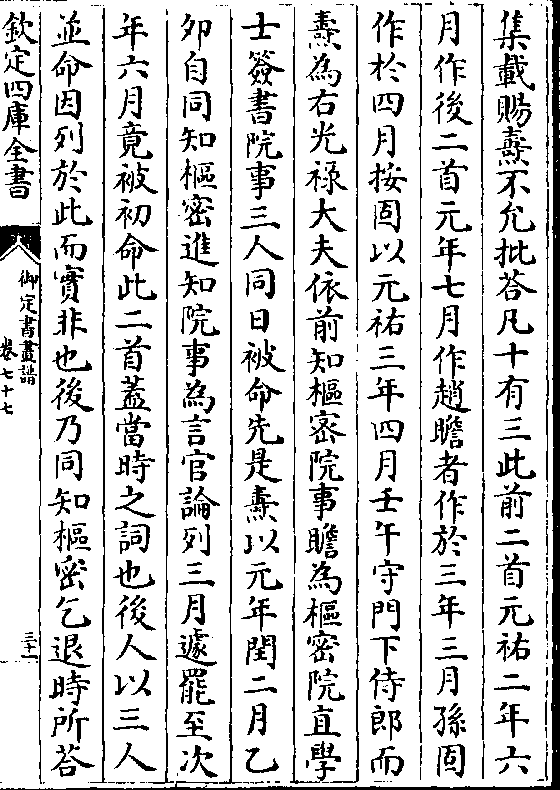 集載賜燾不允批荅凡十有三此前二首元祐二年六
月作後二首元年七月作趙瞻者作於三年三月孫固
作於四月按固以元祐三年四月壬午守門下侍郎而
燾為右光祿大夫依前知樞密院事瞻為樞密院直學
士簽書院事三人同日被命先是燾以元年閏二月乙
夘自同知樞密進知院事為言官論列三月遽罷至次
年六月竟被初命此二首葢當時之詞也後人以三人
並命因列於此而實非也後乃同知樞密乞退時所荅
欽定四庫全書
御定書畫譜
卷七十七
三十一